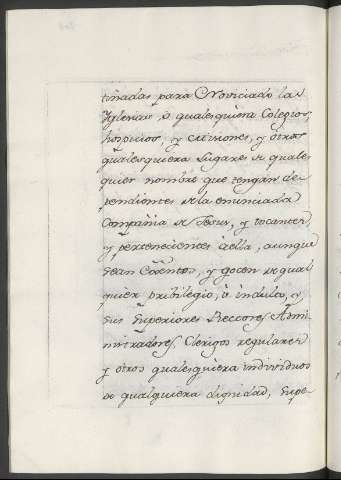 tinadas para Noviciado las
Yglesias ò qualesquiera Colegios,
hospicios, y misiones, y otros
qualesquiera Lugares de quales
quier nombre que tengan de
pendientes de la enunciada
Compañia de Jesus, y tocantes
y pertenecientes aella, aunque
sean Esentos, y gocen de qual
quier pribilegio, ò indulto, y
sus Superiores Rectores Admi
nistradores, Clerigos regulares
y otros qualesquiera individuos
de qualquiera dignidad, supe-